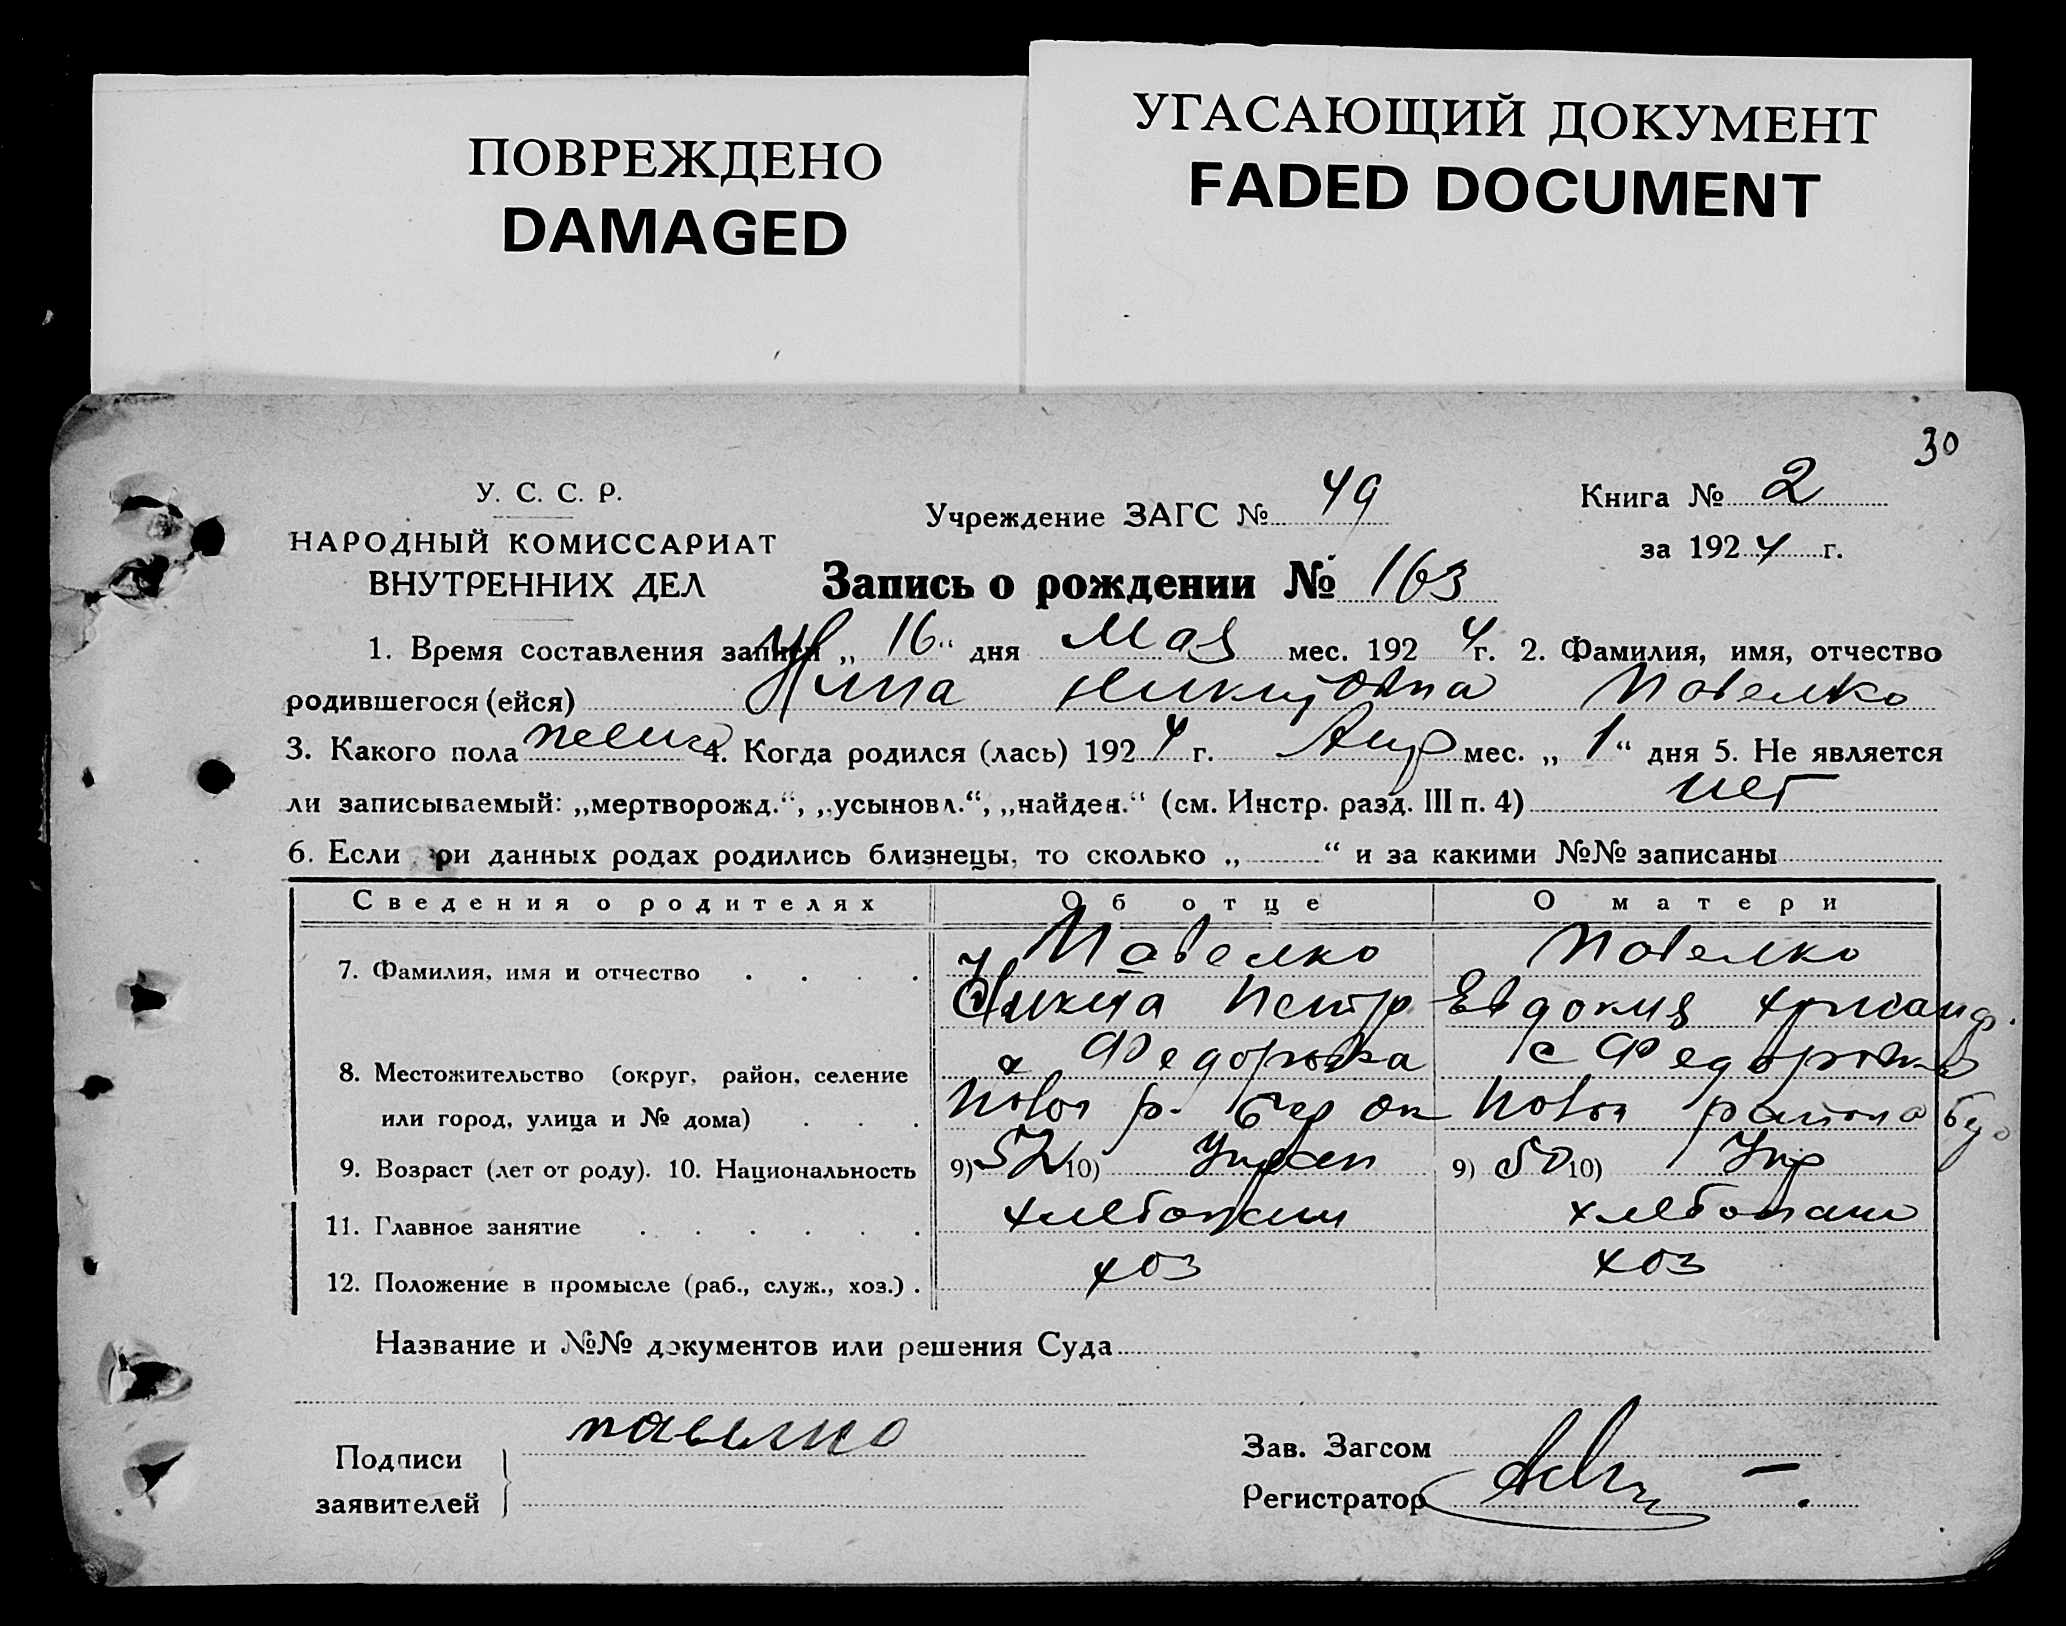 ПОВРЕЖДЕНО
DAMAGED
УГАСАЮЩИЙ ДОКУМЕНТ
FADED DOCUMENT
30
У. С. С. Р.
НАРОДНЫЙ КОМИССАРИАТ
ВНУТРЕННИХ ДЕЛ
Учреждение ЗАГС № 49
Книга № 2
за 1924 г.
Запись о рождении № 163
1. Время составления записи „ 16 “ дня Мая мес. 1924 г. 2. Фамилия, имя, отчество
родившегося (ейся) Нина Никитовна Павелко
3. Какого пола 4. Когда родился (лась) 1924 г. Апр мес. „ 1 “ дня 5. Не является
ли записываемый: „мертворожд.“, „усыновл.“, „найден.“ (см. Инстр. разд. III п. 4) нет
6. Если при данных родах родились близнецы, то сколько „ “ и за какими №№ записаны
Сведения о родителях Об отце О матери
7. Фамилия, имя и отчество . . . . Павелко Павелко
Никита Петр Евдокия Хрисанф.
8. Местожительство (округ, район, селение с Федоровка с Федоровка
или город, улица и № дома) . . . р. района
9. Возраст (лет от роду). 10. Национальность 9) 52 10) Украин 9) 50 10) Укр
11. Главное занятие . . . . . . хлебопаш хлебопаш
12. Положение в промысле (раб., служ., хоз.) . хоз хоз
Название и №№ документов или решения Суда
Подписи
заявителей
павелко
Зав. Загсом
Регистратор